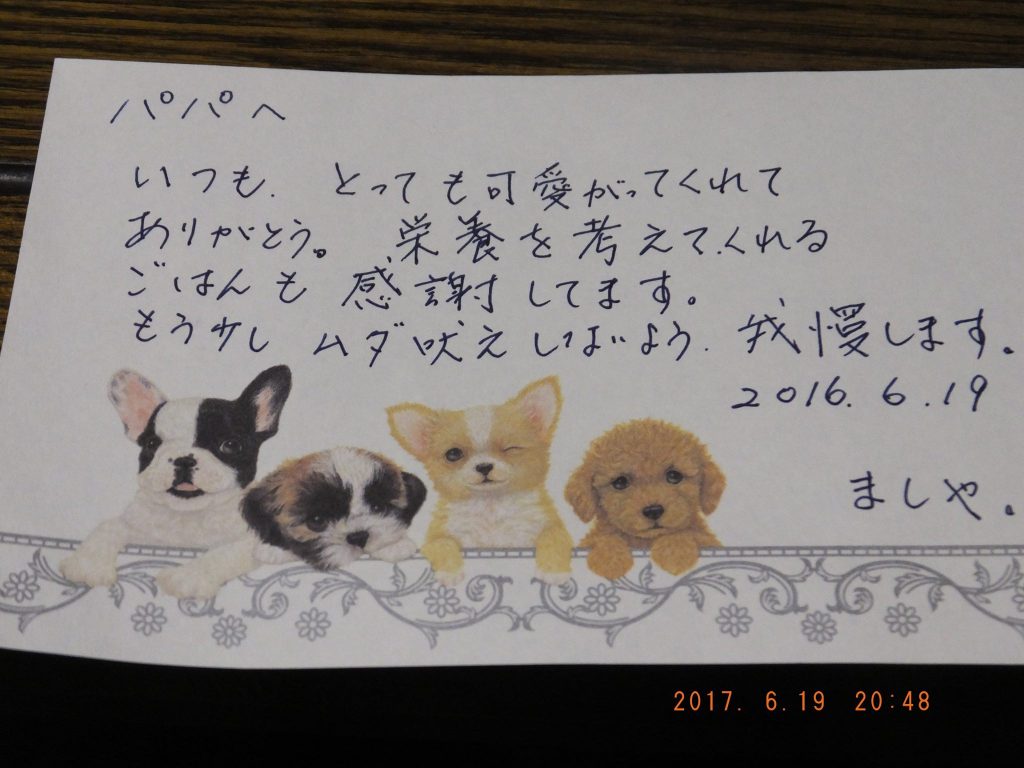 パパへ
いつも、とっても可愛がってくれて
ありがとう。栄養を考えてくれる
ごはんも感謝してます。
もう少しムダ吠えしないよう、我慢します。
2016.6.19
ましや。
2017. 6.19 20:48